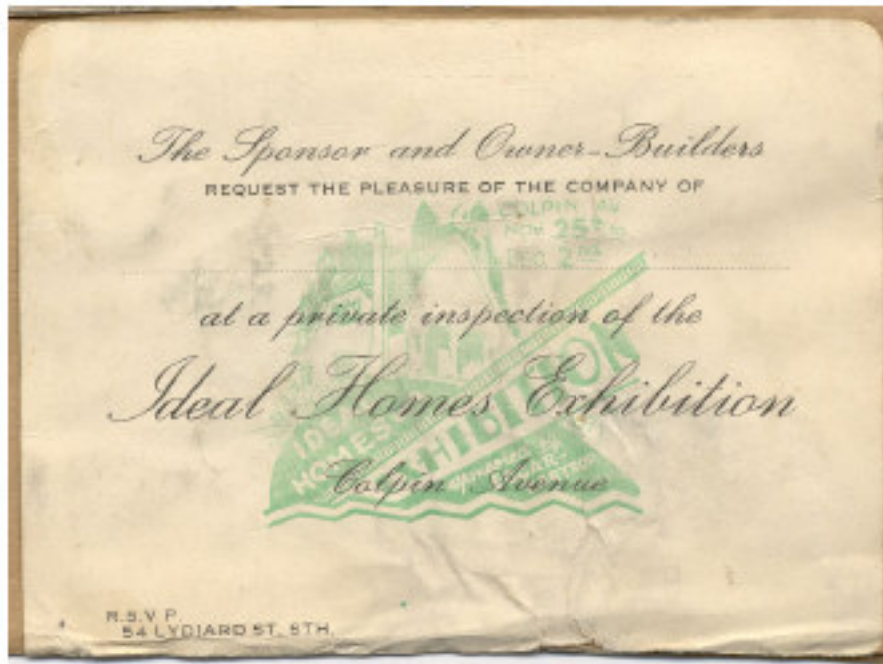 The Sponsor and Owner-Builders
REQUEST THE PLEASURE OF THE COMPANY OF
COLPIN AV
NOV 25TH TO
DEC 2ND
at a private inspection of the
Ideal Homes Exhibition
IDEAL
HOMES
EXHIBITION
Colpin Avenue
R.S.V P.
54 LYDIARD ST. STH.